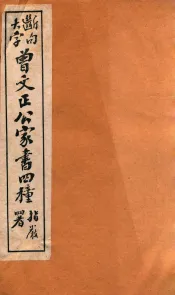 斷句
大字
曾文正公家書四種
指嚴
署